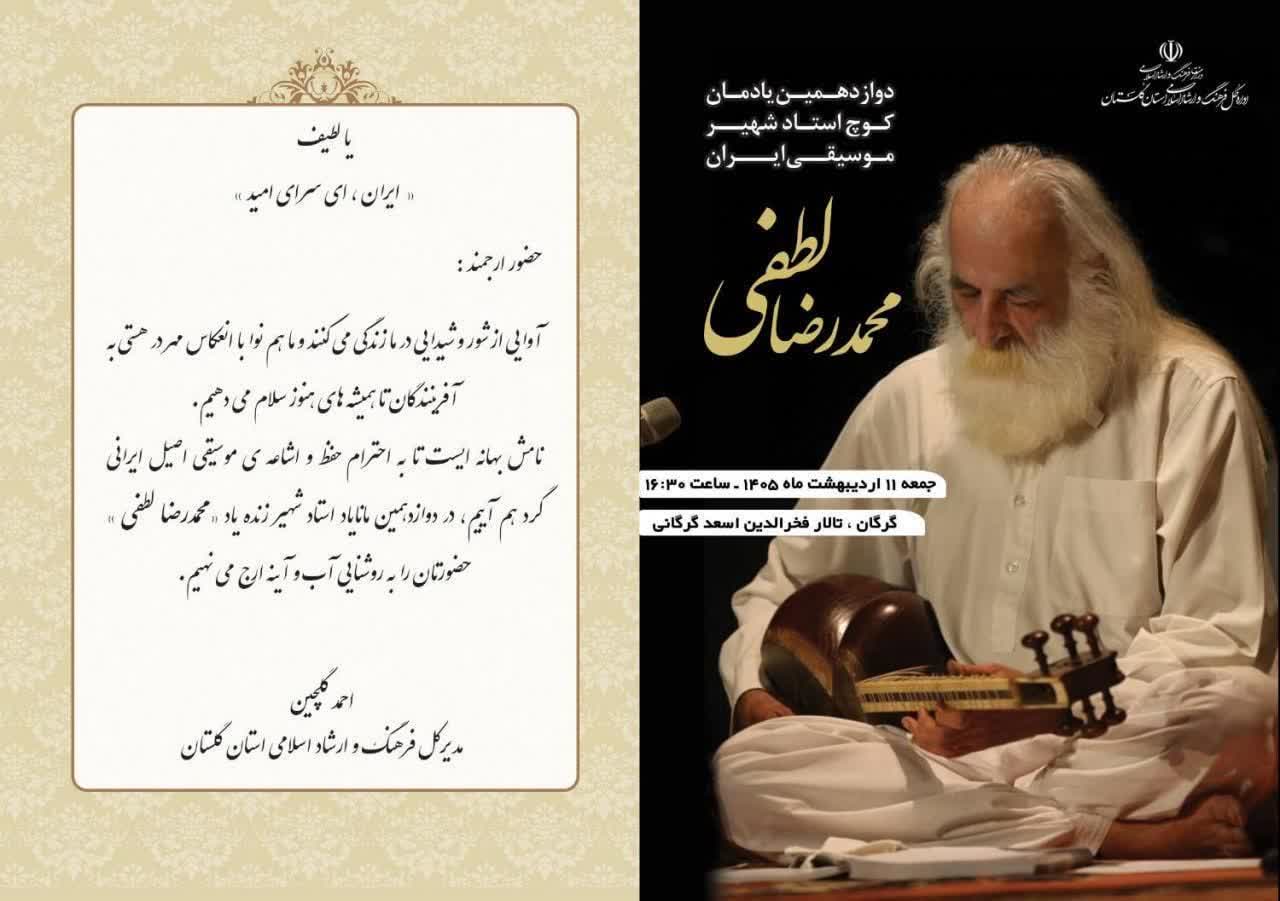 وزارت فرهنگ و ارشاد اسلامی
اداره کل فرهنگ و ارشاد اسلامی استان گلستان
دوازدهمین یادمان
کوچ استاد شهیر
موسیقی ایران
محمدرضا لطفی
جمعه ۱۱ اردیبهشت ماه ۱۴۰۵ ـ ساعت ۱۶:۳۰
گرگان ، تالار فخرالدین اسعد گرگانی
یا لطیف
« ایران ، ای سرای امید »
حضور ارجمند :
آوایی از شور و شیدایی در ما زندگی می کنند و ما هم نوا با انعکاس مهر در هستی به
آفرینندگان تا همیشه های هنوز سلام می دهیم .
نامش بهانه ایست تا به احترام حفظ و اشاعه ی موسیقی اصیل ایرانی
گرد هم آییم ، در دوازدهمین مانایاد استاد شهیر زنده یاد « محمدرضا لطفی »
حضورتان را به روشنایی آب و آینه ارج می نهیم .
احمد گلچین
مدیرکل فرهنگ و ارشاد اسلامی استان گلستان